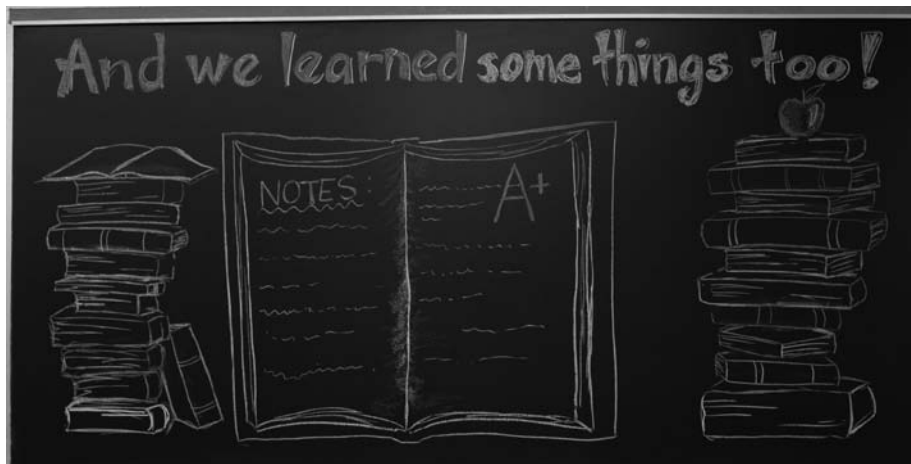 And we learned some things too!
NOTES:
A+